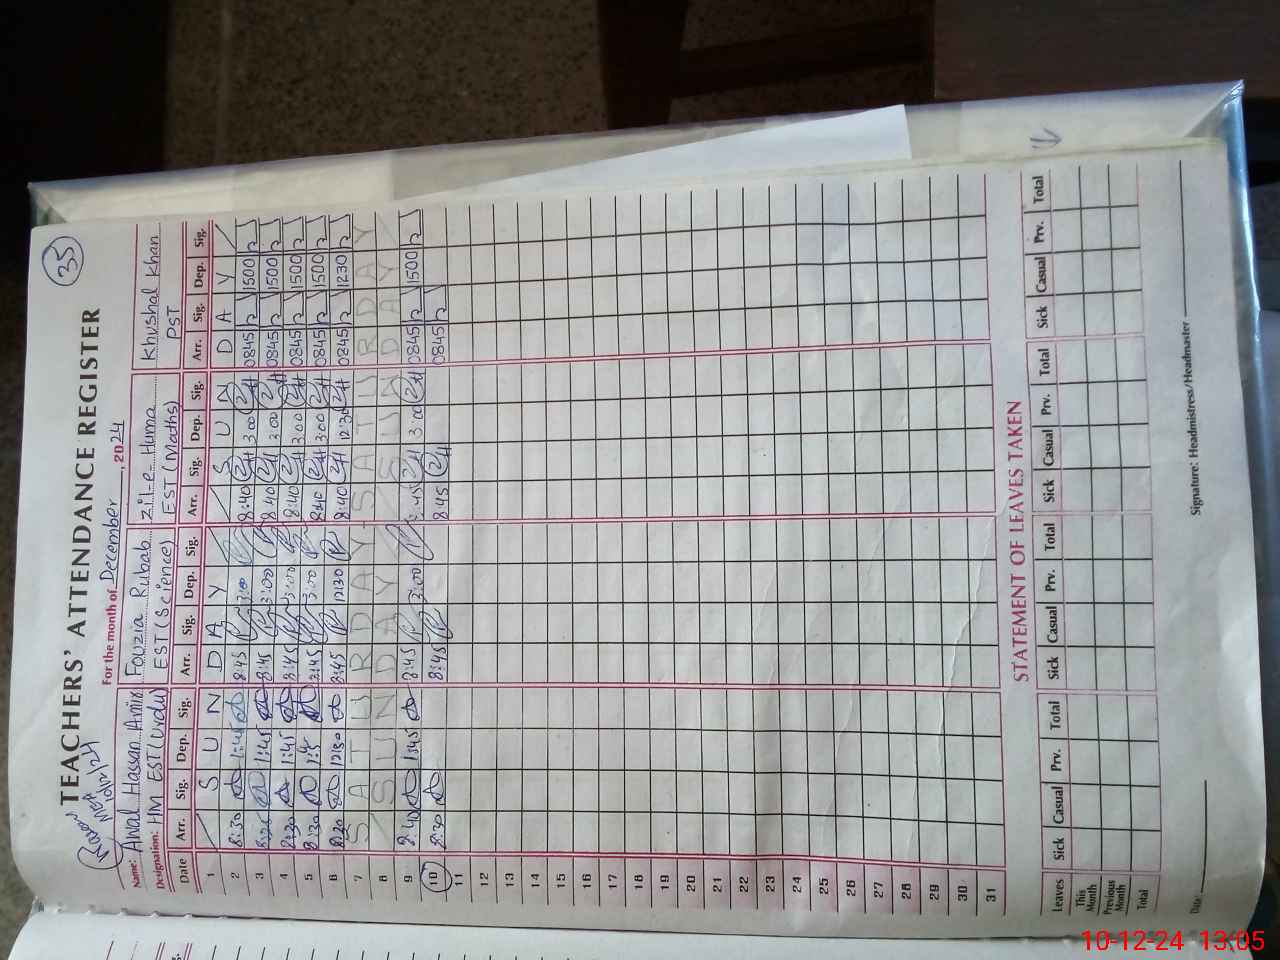 35
TEACHERS' ATTENDANCE REGISTER
10/12/24
For the month of December, 2024
Name: Awal Hassan Amir Fouzia Rubab Zil-e-Huma Khushal Khan
Designation: HM EST(Urdu) EST(Science) EST(Maths) PST
Date Arr. Sig. Dep. Sig. Arr. Sig. Dep. Sig. Arr. Sig. Dep. Sig. Arr. Sig. Dep. Sig.
1 S U N D A Y S U N D A Y
2 8:30 1:45 8:45 3:00 8:40 3:00 0845 1500
3 8:25 1:45 8:45 3:00 8:40 3:00 0845 1500
4 8:30 1:45 8:45 3:00 8:40 3:00 0845 1500
5 8:30 8:45 3:00 8:40 3:00 0845 1500
6 8:30 12:30 8:45 12:30 8:40 12:30 0845 1230
7 S A T U R D A Y S A T U R D A Y
8 S U N D A Y S U N D A Y
9 8:40 1:45 8:45 3:00 8:45 3:00 0845 1500
10 8:30 8:45 8:45 0845
11
12
13
14
15
16
17
18
19
20
21
22
23
24
25
26
27
28
29
30
31
STATEMENT OF LEAVES TAKEN
Leaves Sick Casual Prv. Total Sick Casual Prv. Total Sick Casual Prv. Total Sick Casual Prv. Total
This Month
Previous Month
Total
Date: Signature: Headmistress/Headmaster
10-12-24 13:05